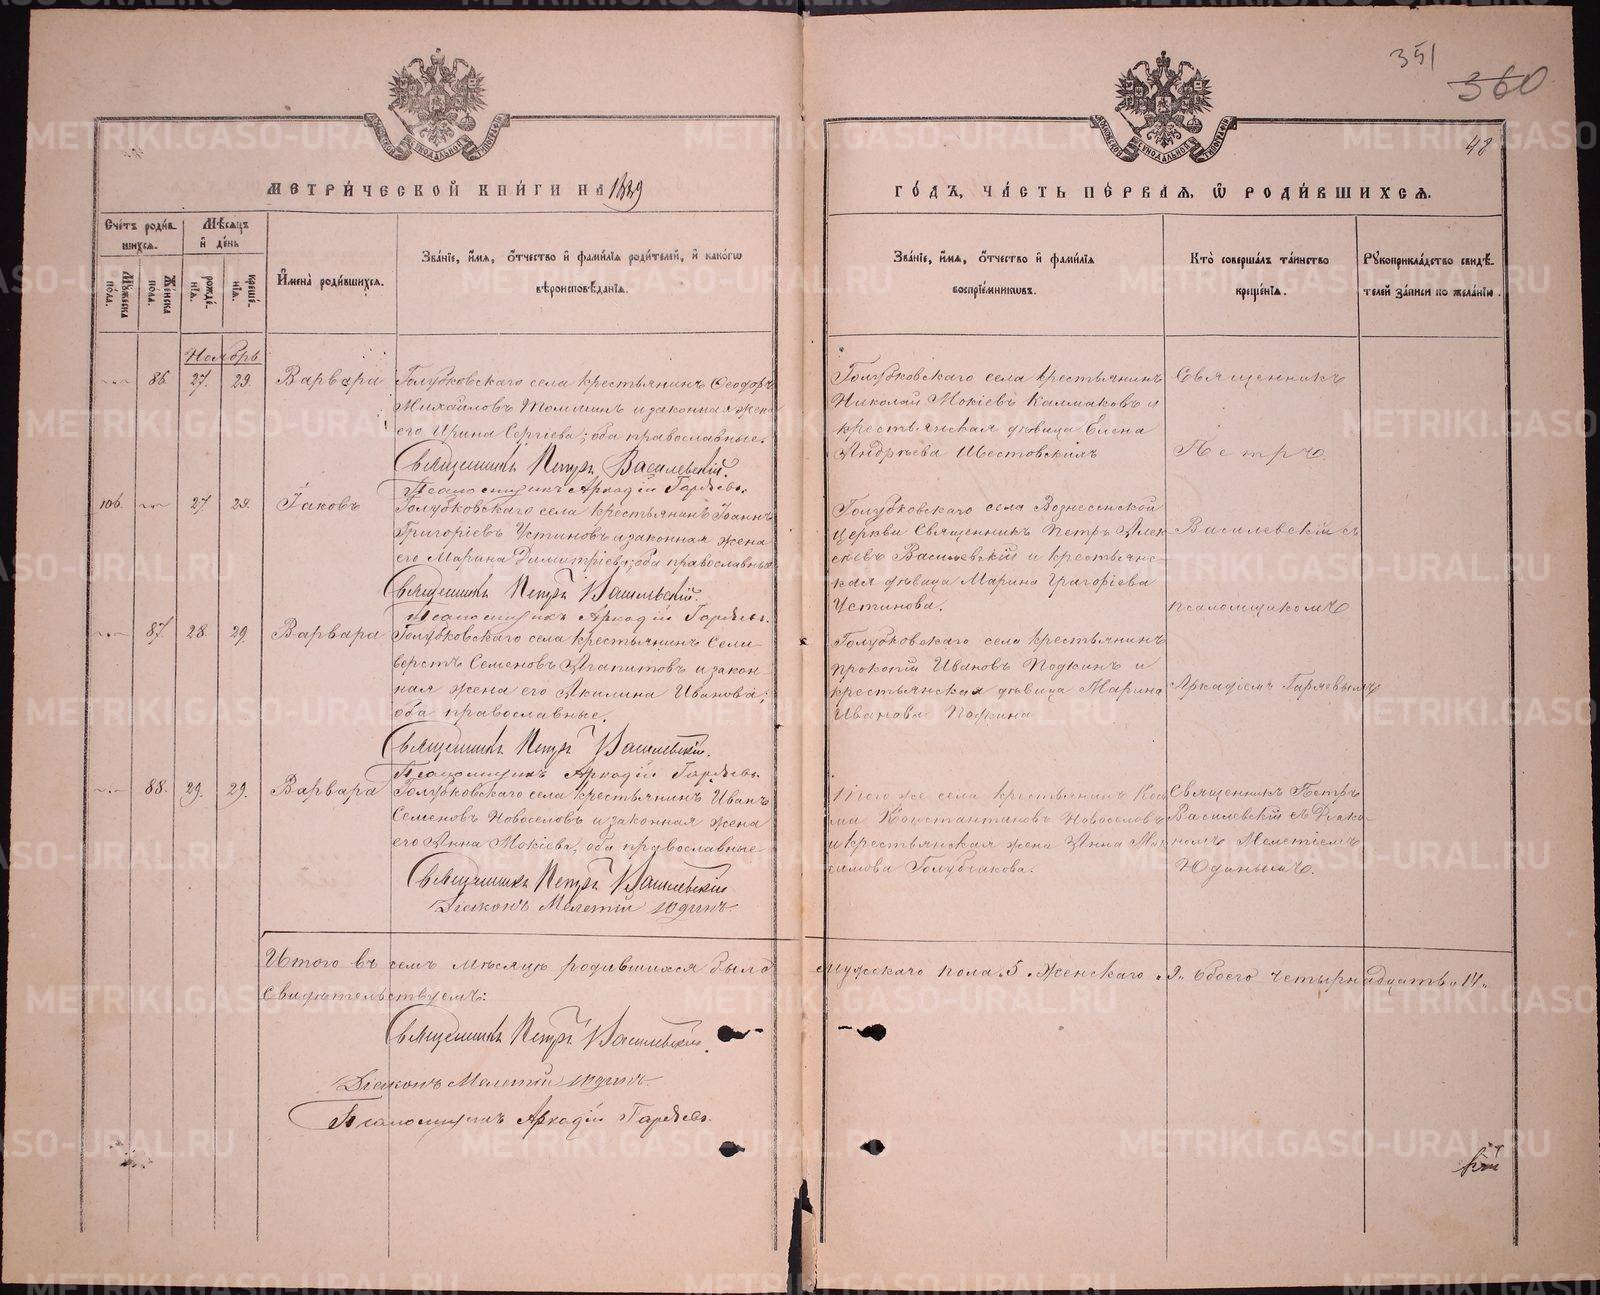 351
360
48
МЕТРИ́ЧЕСКОЙ КНИ́ГИ НА 1889
ГО́ДЪ, ЧА́СТЬ ПЕ́РВАЯ, Ѡ РОДИ́ВШИХСЯ.
Сче́тъ роди́в-
шихся.
Мѣ́сяцъ
и҆ де́нь
Му́жеска по́ла.
Же́нска по́ла.
рожде́нїя.
креще́нїя.
И҆мена̀ роди́вшихся.
Зва́нїе, и҆́мя, ѻ҆́тчество и҆ фами́лїя роди́телей, и҆ како́гѡ
вѣроисповѣ́данїя.
Зва́нїе, и҆́мя, ѻ҆́тчество и҆ фами́лїя
воспрїе́мниковъ.
Кто̀ соверша́лъ та́инство
креще́нїя.
Рꙋкоприкла́дство свидѣ́-
телей за́писи по жела́нїю.
Ноябрь
86. 27. 29. Варвара
Голубковскаго села крестьянинъ Ѳеодоръ
Михайловъ Томилинъ и законная жена
его Ирина Сергіева; оба православные.
Священникъ Петръ Василевскій.
Псаломщикъ Аркадій Гаряевъ.
Голубковскаго села крестьянинъ
Николай Мокіевъ Калмаковъ и
крестьянская дѣвица Елена
Андреева Шестовскихъ
Священникъ
Петръ
106. 27 29. Іаковъ
Голубковскаго села крестьянинъ Іоаннъ
Григоріевъ Устиновъ и законная жена
его Марина Димитріева; оба православные
Священникъ Петръ Василевскій.
Псаломщикъ Аркадій Гаряевъ.
Голубковскаго села Вознесенской
церкви Священникъ Петръ Алек-
сѣевъ Василевскій и крестьянс-
кая дѣвица Марина Григоріева
Устинова.
Василевскій съ
псаломщикомъ
87. 28. 29. Варвара
Голубковскаго села крестьянинъ Сели-
верстъ Семеновъ Агапитовъ и закон-
ная жена его Акилина Иванова;
оба православные.
Священникъ Петръ Василевскій.
Псаломщикъ Аркадій Гаряевъ.
Голубковскаго села крестьянинъ
Прокопій Ивановъ Подкинъ и
крестьянская дѣвица Марина
Иванова
Аркадіемъ Гаряевымъ
88. 29. 29. Варвара
Голубковскаго села крестьянинъ Иванъ
Семеновъ Новоселовъ и законная жена
его Анна Мокіева, оба православные
Священникъ Петръ Василевскій
Діаконъ Мелетій Юдинъ.
Того же села крестьянинъ Кос-
ма Константиновъ Новоселовъ
и крестьянская жена Анна Мак-
симова Голубчикова.
Священникъ Петръ
Василевскій съ Діако-
номъ Мелетіемъ
Юдинымъ.
Итого въ семъ мѣсяцѣ родившихся было мужскаго пола „5„ женскаго „9„ обоего четырнадцать „14„
Свидѣтельствуемъ:
Священникъ Петръ Василевскій.
Діаконъ Мелетій Юдинъ.
Псаломщикъ Аркадій Гаряевъ.
METRIKI.GASO-URAL.RU